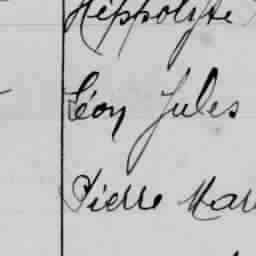 Hippolyte
Léon Jules
Pierre Mar